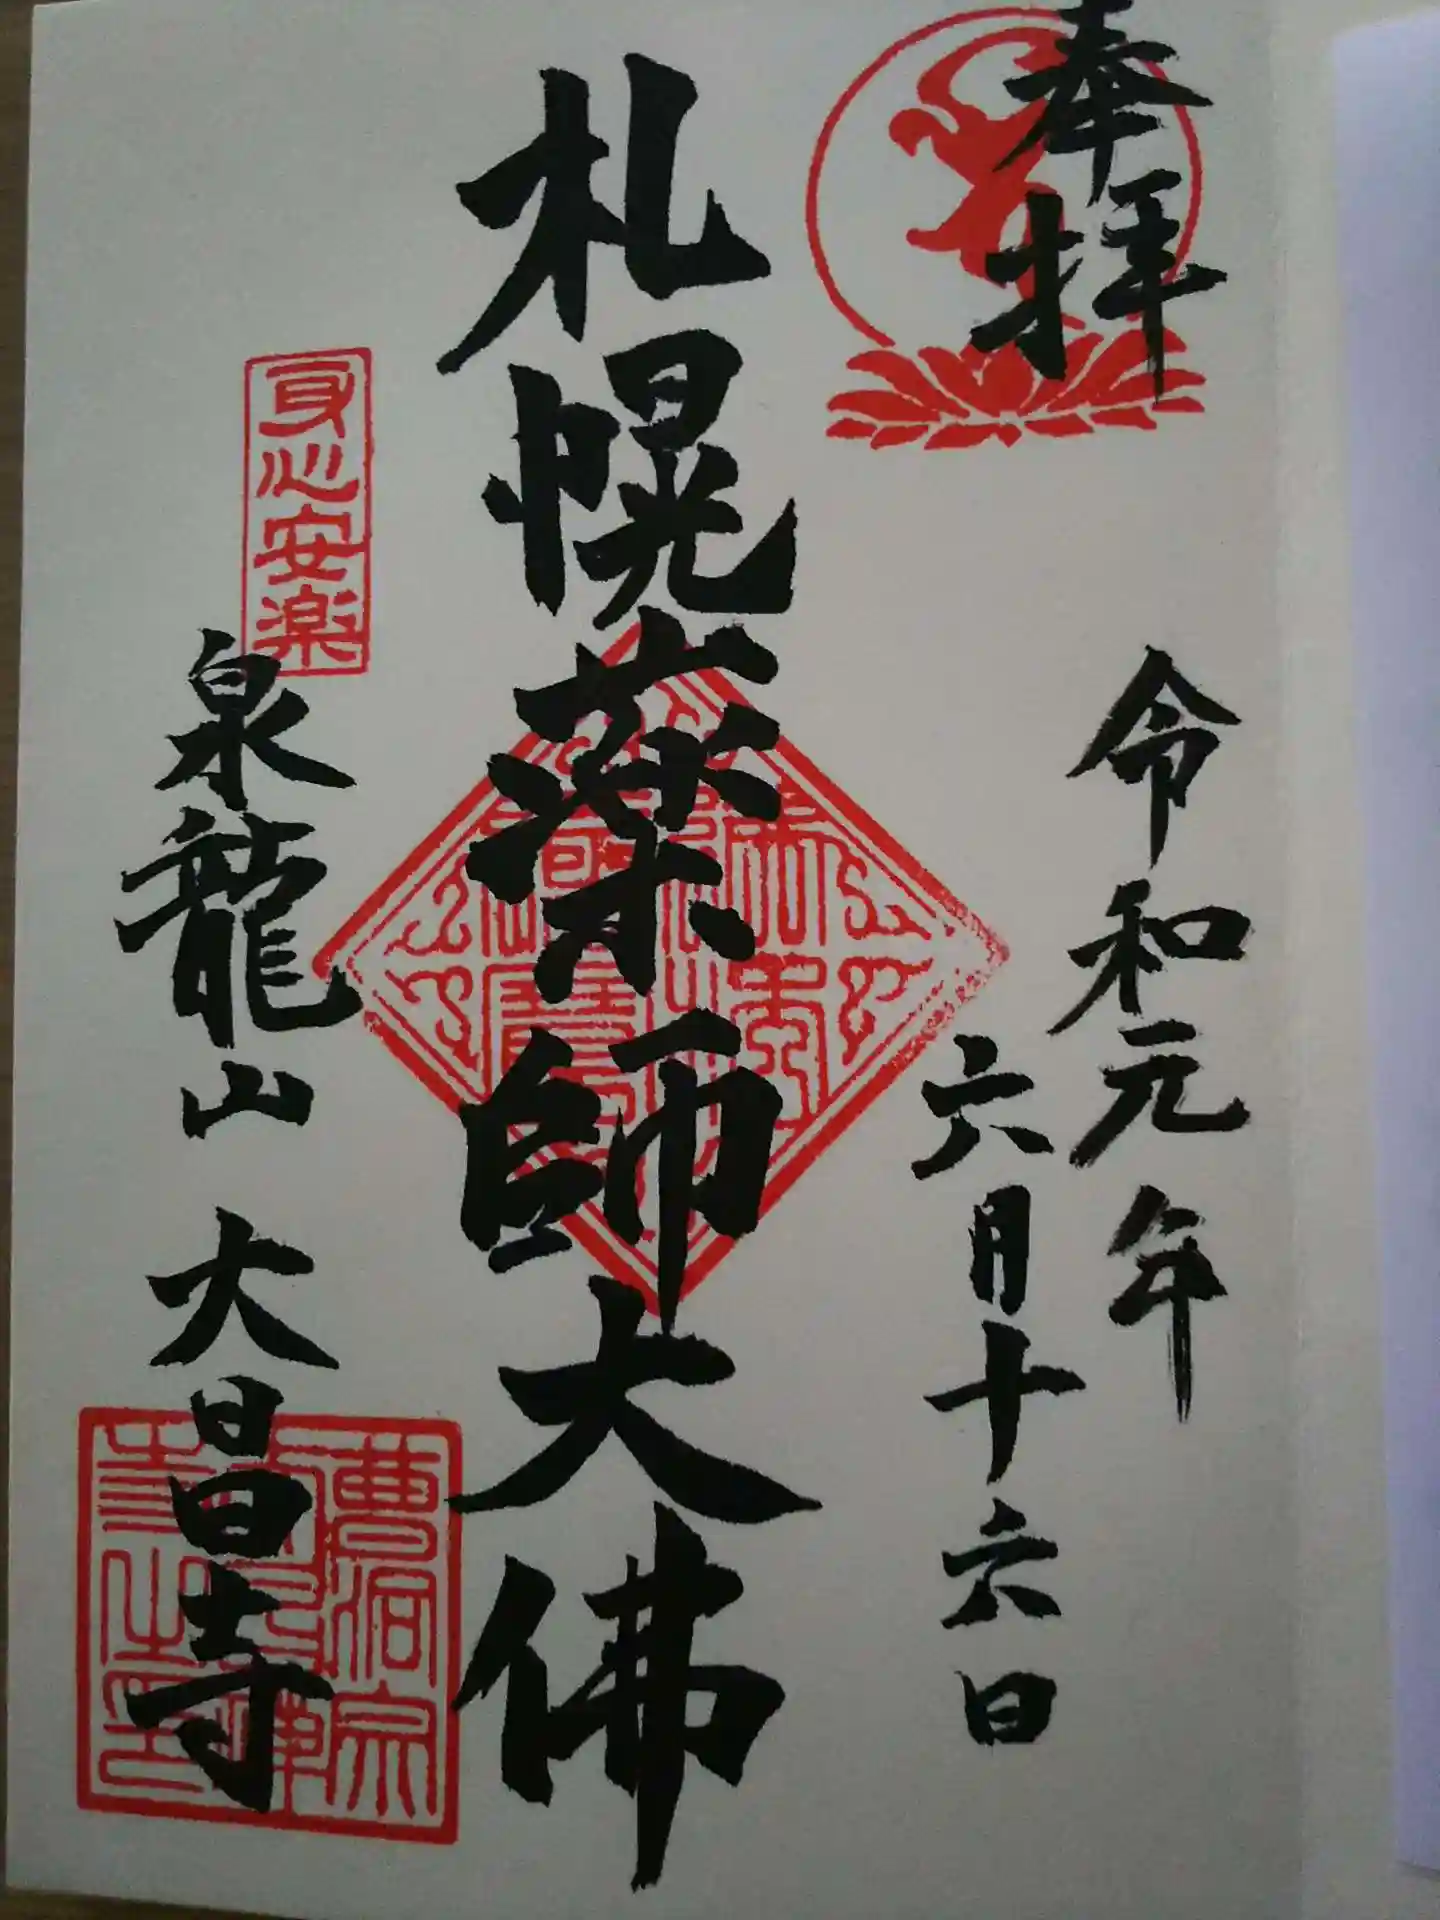 奉拝
令和元年
六月十六日
札幌薬師大佛
身心安楽
泉龍山 大昌寺
曹洞宗